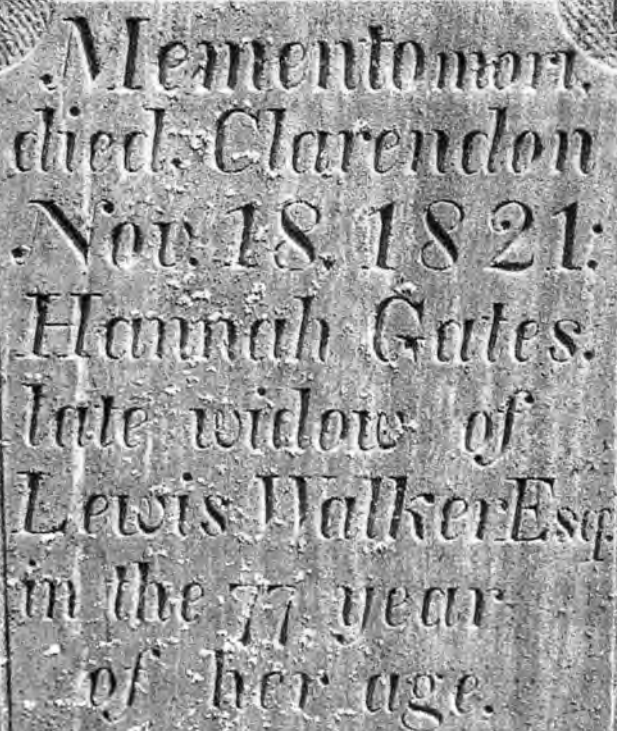 Memento mori.
died. Clarendon
Nov. 18. 1821:
Hannah Gates.
late widow of
Lewis Walker Esq.
in the 77 year
of her age.